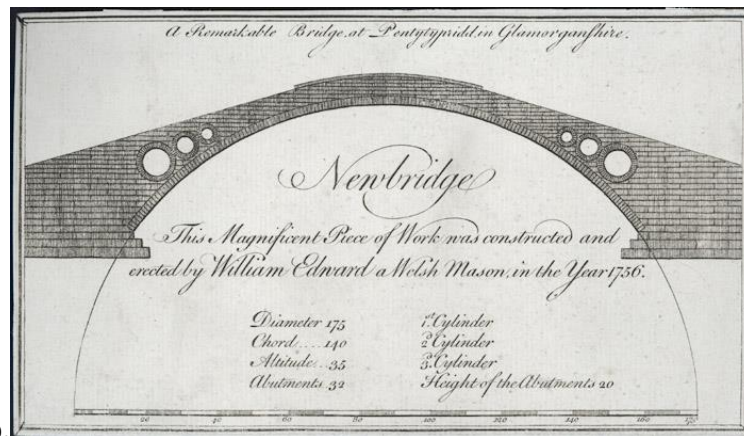 A Remarkable Bridge, at Pentytypridd, in Glamorganshire.
Newbridge
This Magnificent Piece of Work was constructed and
erected by William Edward a Welsh Mason, in the Year 1756.
Diameter 175
Chord.....140
Altitude...35
Abutments.32
1st. Cylinder
2d. Cylinder
3d. Cylinder
Height of the Abutments 20
20 40 60 80 100 120 140 160 175